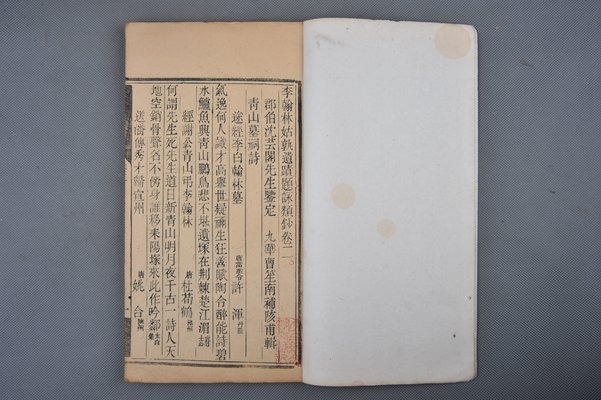 李翰林姑孰遺蹟題詠類鈔卷二
郡伯沈芸閣先生鑒定 九華曹笙南補陔甫輯
青山墓祠詩
途經李白翰林墓 唐 許渾
氣逸何人識才高舉世疑禰生狂善賦陶令醉能詩碧
水鱸魚興青山鵬鳥悲不堪遺塚在荆棘楚江湄
經謝公青山弔李翰林 唐 杜荀鶴
何謂先生死先生道日新青山明月夜千古一詩人天
地空銷骨聲名不傍身誰移耒陽塚來此作吟鄰
送潘傳秀才歸宣州 唐 姚合